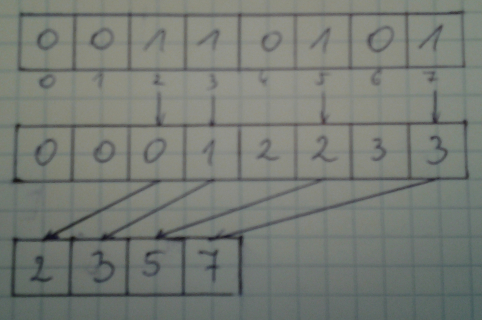 0 0 1 1 0 1 0 1
0 1 2 3 4 5 6 7
0 0 0 1 2 2 3 3
2 3 5 7